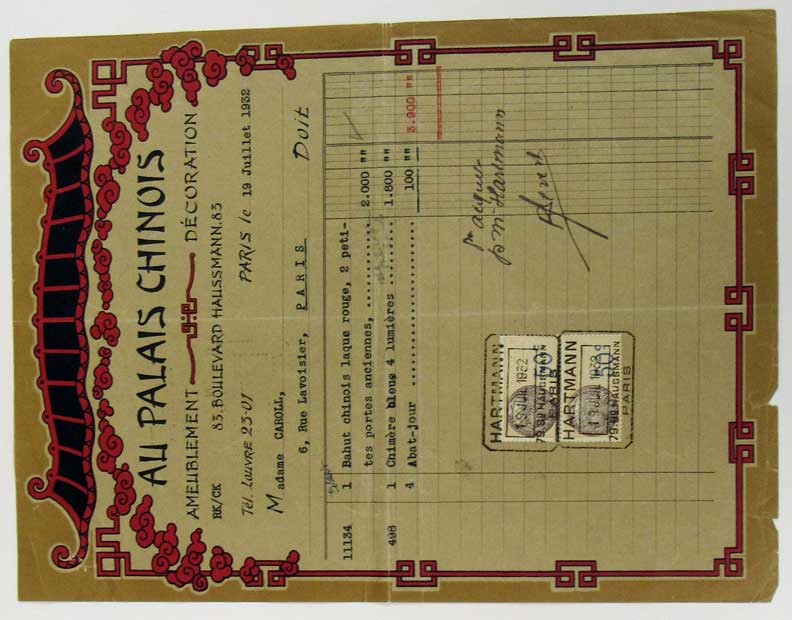 AU PALAIS CHINOIS
AMEUBLEMENT DÉCORATION
83. BOULEVARD HAUSSMANN. 83
RK/CK
Tél. LOUVRE 23-01 PARIS le 19 Juillet 1932
Madame CAROLL,
6, Rue Lavoisier, PARIS
DOIT
11134 1 Bahut chinois laque rouge, 2 peti-
tes portes anciennes, .......... 2.000 "" 
498 1 Chimère bleue 4 lumières .......... 1.800 ""
4 Abat-Jour .......... 100 "" 3.900 ""
pr acquit
p Mr Hartmann
HARTMANN
19 JUIL 1932
50c
79.89 HAUSSMANN
PARIS
HARTMANN
19 JUIL 1932
50c
79.89 HAUSSMANN
PARIS